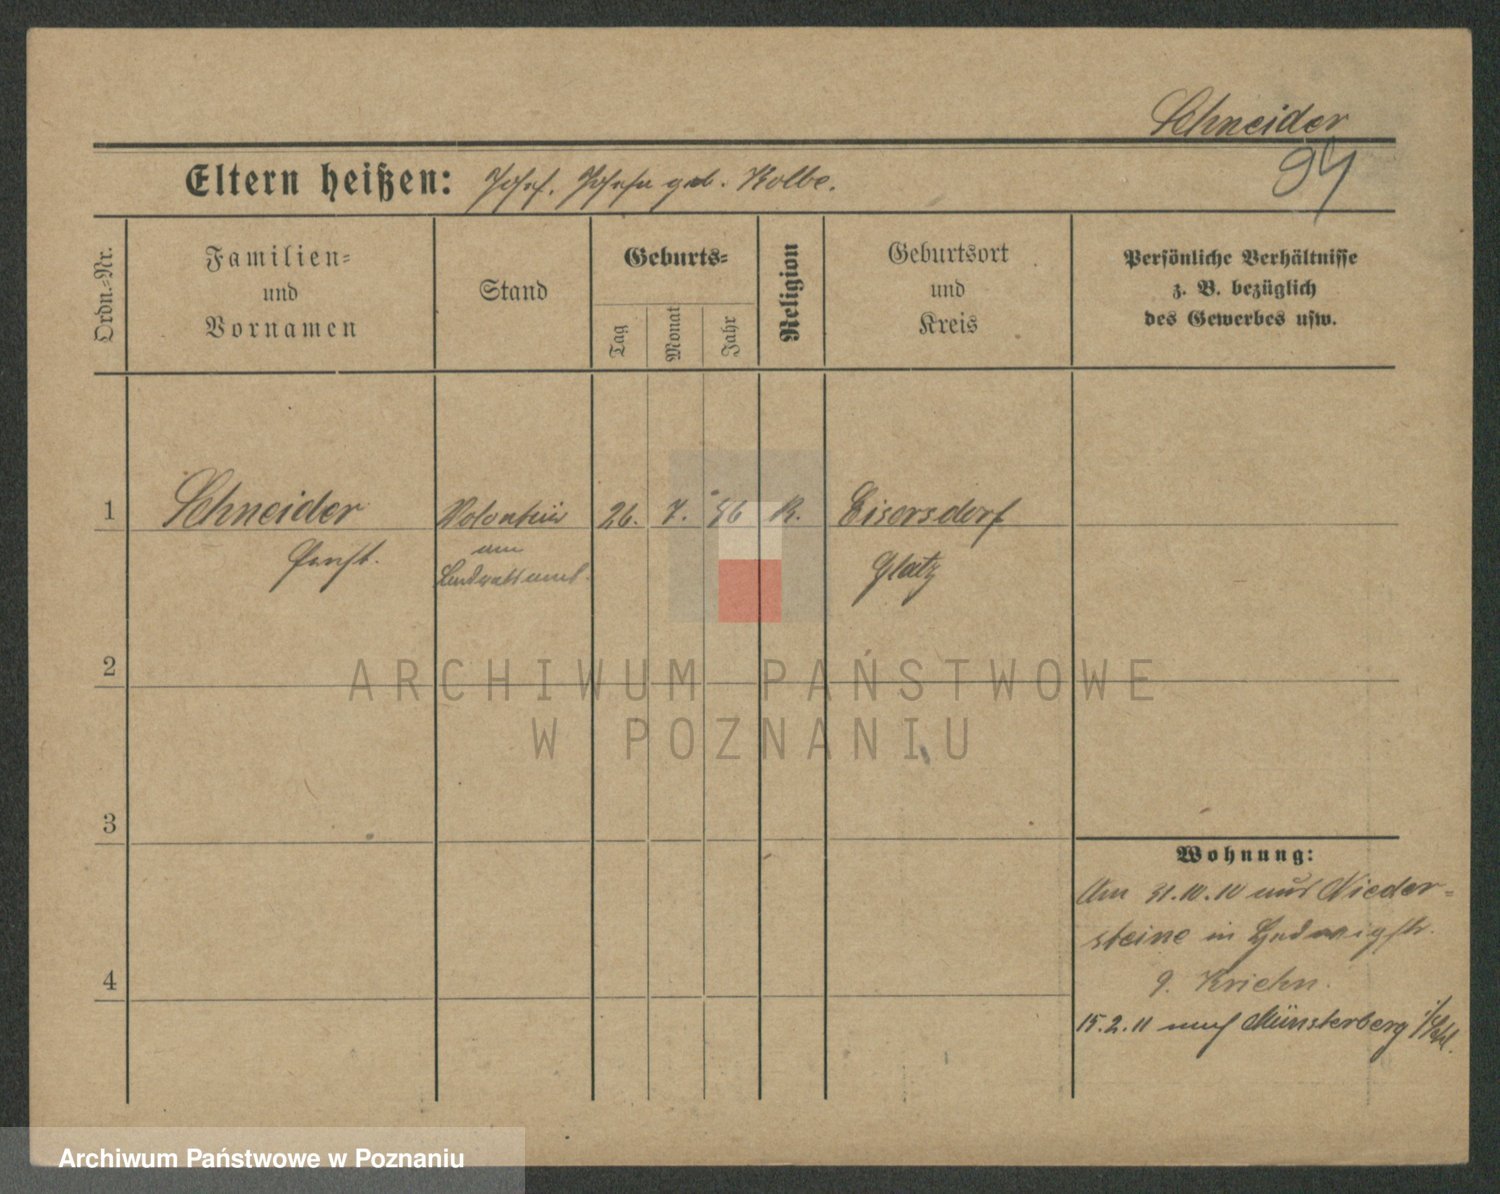 Schneider
94
Eltern heißen: Josef, Josefa geb. Kolbe.
Ordn.-Nr.
Familien-
und
Vornamen
Stand
Geburts-
Tag
Monat
Jahr
Religion
Geburtsort
und
Kreis
Persönliche Verhältnisse
z. B. bezüglich
des Gewerbes usw.
1
Schneider
Volontär
26.
7.
K.
Eisersdorf
Ernst.
am
Landratsamt.
Glatz
2
3
4
Wohnung:
Am 31.10.10 aus Nieder-
steine in Hedwigstr.
9.
15.2.11 nach Münsterberg i/Schl.
ARCHIWUM PAŃSTWOWE
W POZNANIU
Archiwum Państwowe w Poznaniu